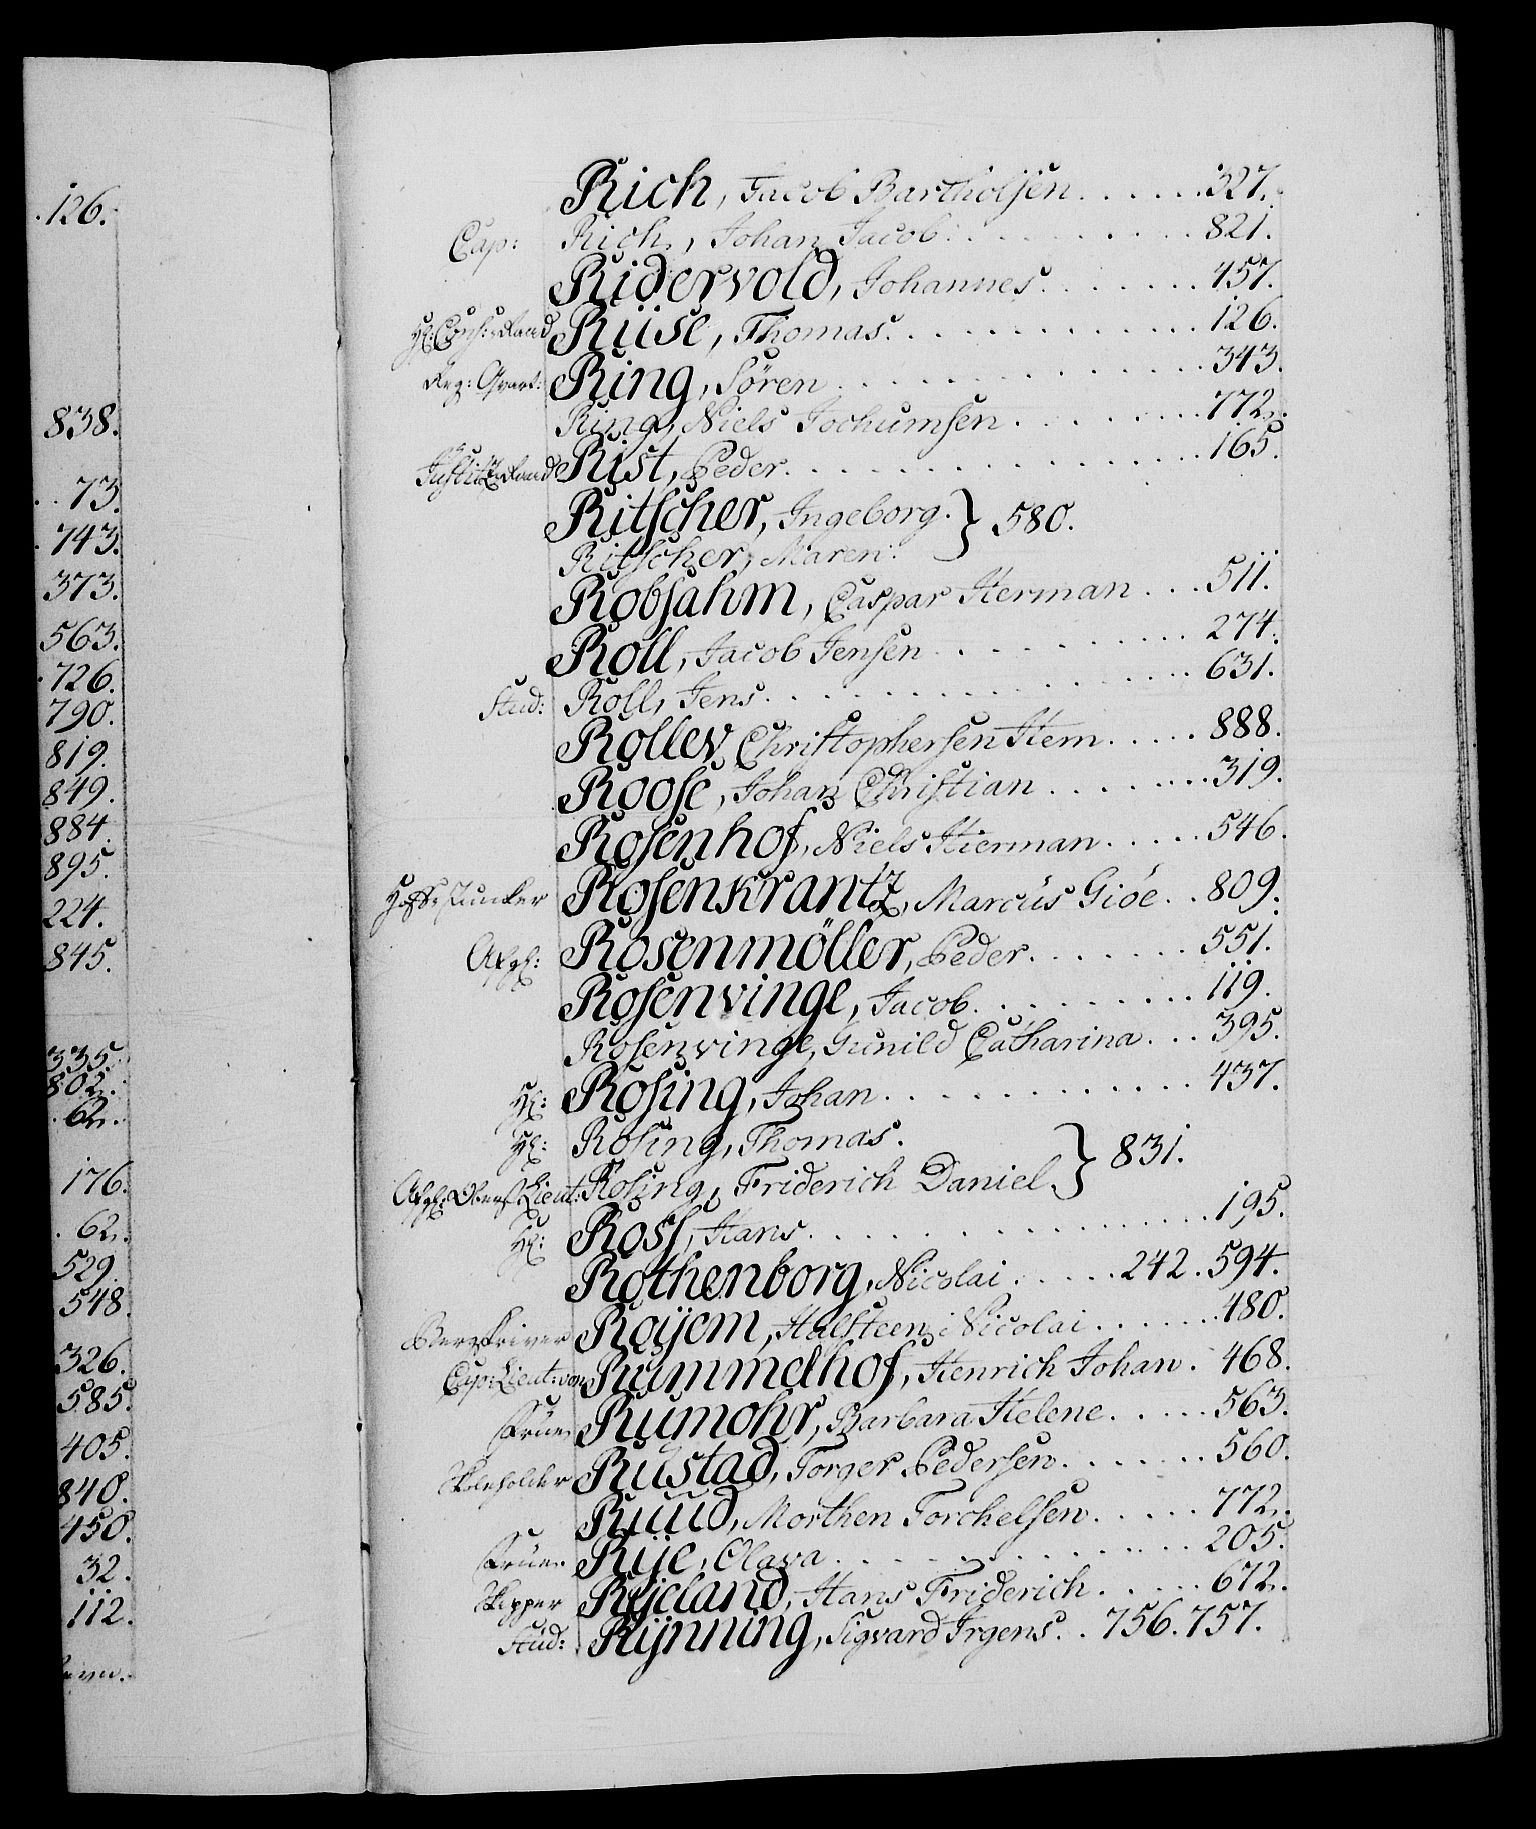 .126.
838.
. . 73.
. 743.
373.
563.
. 726.
790.
819.
849.
884.
895.
224.
845.
335.
802.
. 62.
176.
. 62.
529.
548.
326.
585.
405.
840.
450.
32.
112.
Rich, Jacob Bartholsen . . . . . . 327.
Cap: Rich, Johan Jacob . . . . . . . . 821.
Ridervold, Johannes . . . . . . . 457.
Riise, Thomas . . . . . . . . . . . 126.
Reg: Qvart: Ring, Sören . . . . . . . . . . . . 343.
Ring, Niels Jochumsen . . . . . . . 772.
Justitz Raad Rist, Peder . . . . . . . . . . . . . 165.
Ritscher, Ingeborg. } 580.
Ritscher, Maren.
Robsahm, Caspar Herman . . . 511.
Roll, Jacob Jensen . . . . . . . . . 274.
Stud: Roll, Jens . . . . . . . . . . . . . 631.
Rollev Christophersen Hem . . . . . 888.
Roose, Johan Christian . . . . . . . 319.
Rosenhof, Niels Hierman . . . . . 546.
Hoff Junker Rosenkrantz, Marcus Giöe . . 809.
Afgl: Rosenmöller, Peder . . . . . . . 551.
Rosenvinge, Jacob . . . . . . . . . 119.
Rosenvinge, Gunild Catharina . . . 395.
Hl: Rosing, Johan . . . . . . . . . . . 437.
Hl: Rosing, Thomas. } 831.
Afgl: Oberst Lieut: Rosing, Friderich Daniel
Hl: Ross, Hans . . . . . . . . . . . . . 195.
Rothenborg, Nicolai . . . . . 242. 594.
Bergskriver Rojem, Halsteen Nicolai . . . . . . 480.
Cap: Lieut: von Rummelhof, Henrich Johan . 468.
Frue Rumohr, Barbara Helene . . . . . 563.
Skoleholder Rustad, Torger Pedersen . . . . . . . 560.
Ruud, Morthen Torchelsen . . . . . 772.
Frue Rije, Olava . . . . . . . . . . . . 205.
Skipper Rijeland, Hans Friderich . . . . . 672.
Stud: Rijnning, Sigvard Irgens . . 756. 757.